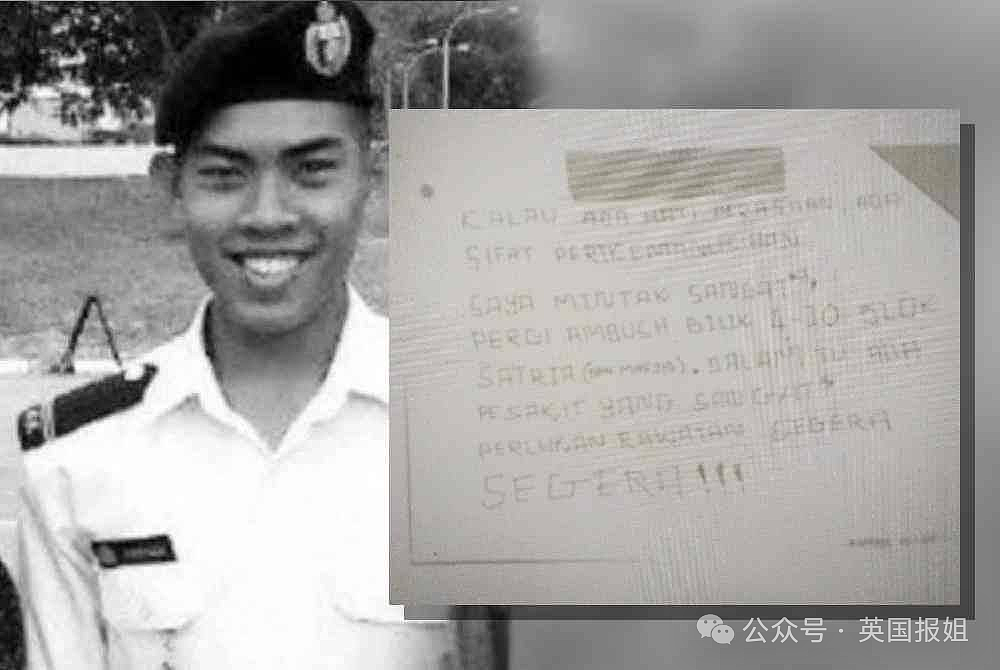 KALAU ADA HATI PERASAAN, ADA
SIFAT PERIKEMANUSIAAN
SAYA MINTAK SANGAT²,
PERGI AMBUSH BILIK 4-10 BLOK
SATRIA . DALAM TU ADA
PESAKIT YANG SANGAT²
PERLUKAN RAWATAN SEGERA
SEGERA!!!
公众号 · 英国报姐